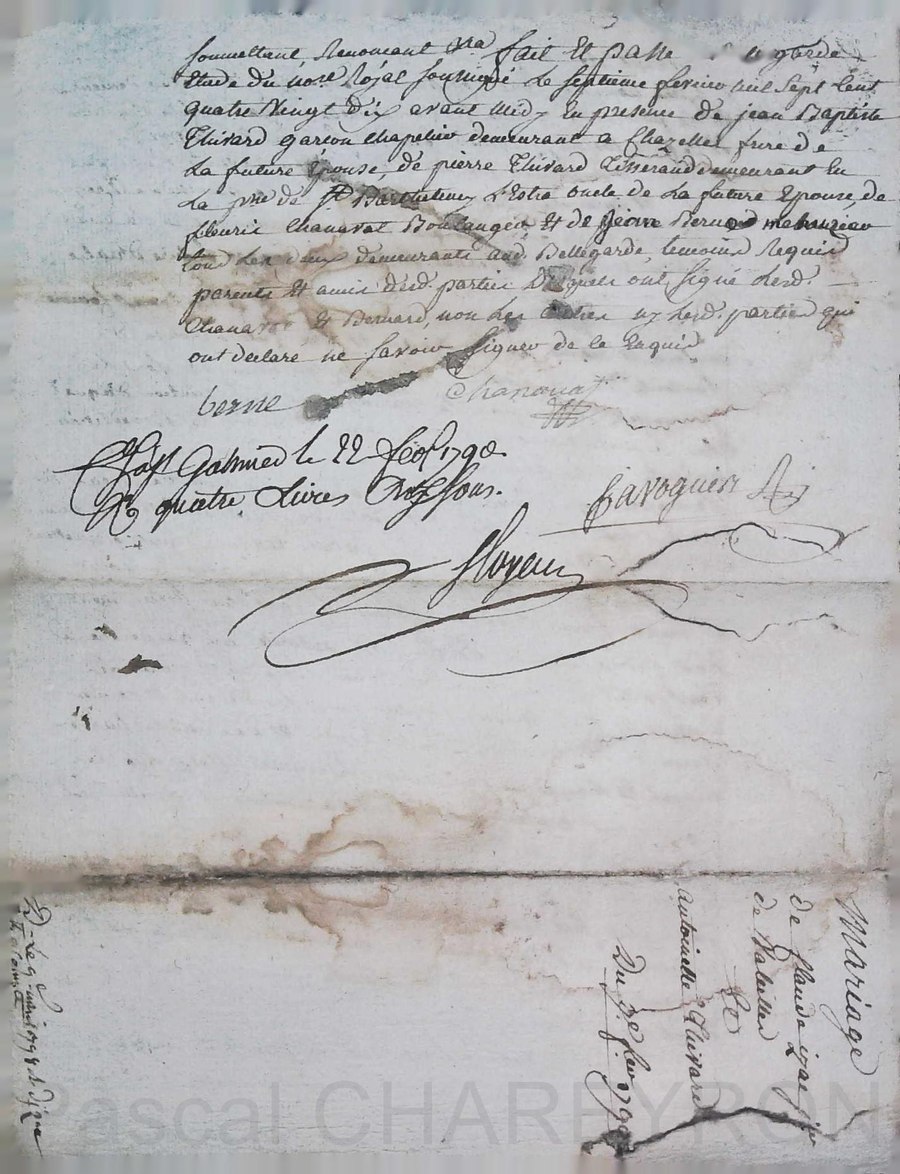 soumettant, Renoncant &ra fait Et passé garde
Etude du nore. Royal soussigné Le septieme fevrier mil sept Cent
quatre Vingt dix avant midy En presence de jean Baptiste
Thivard garcon chapelier demeurant a Chazelles frere de
La future Epouse, de pierre Thivard Tisserand demeurant En
La pse de St Barthelemy Lestra oncle de La future Epouse, de
fleurie Chanavat Boulanger Et de pierre Bernard
tous Les deux demeurants aud. Bellegarde, temoins Requis
parents Et amis desd. parties Desquels ont signé Lesd.
Chanavat Et Bernard, non Les autres ny Lesd. parties qui
ont declaré ne savoir signer de ce Enquis
Chanavat
a St Galmier le 22 fevr 1790
R quatre Livres sous.
Mariage
de
de
Et
antoinette Thivard
Du 7e fevr 1790
Pascal CHARBYRON